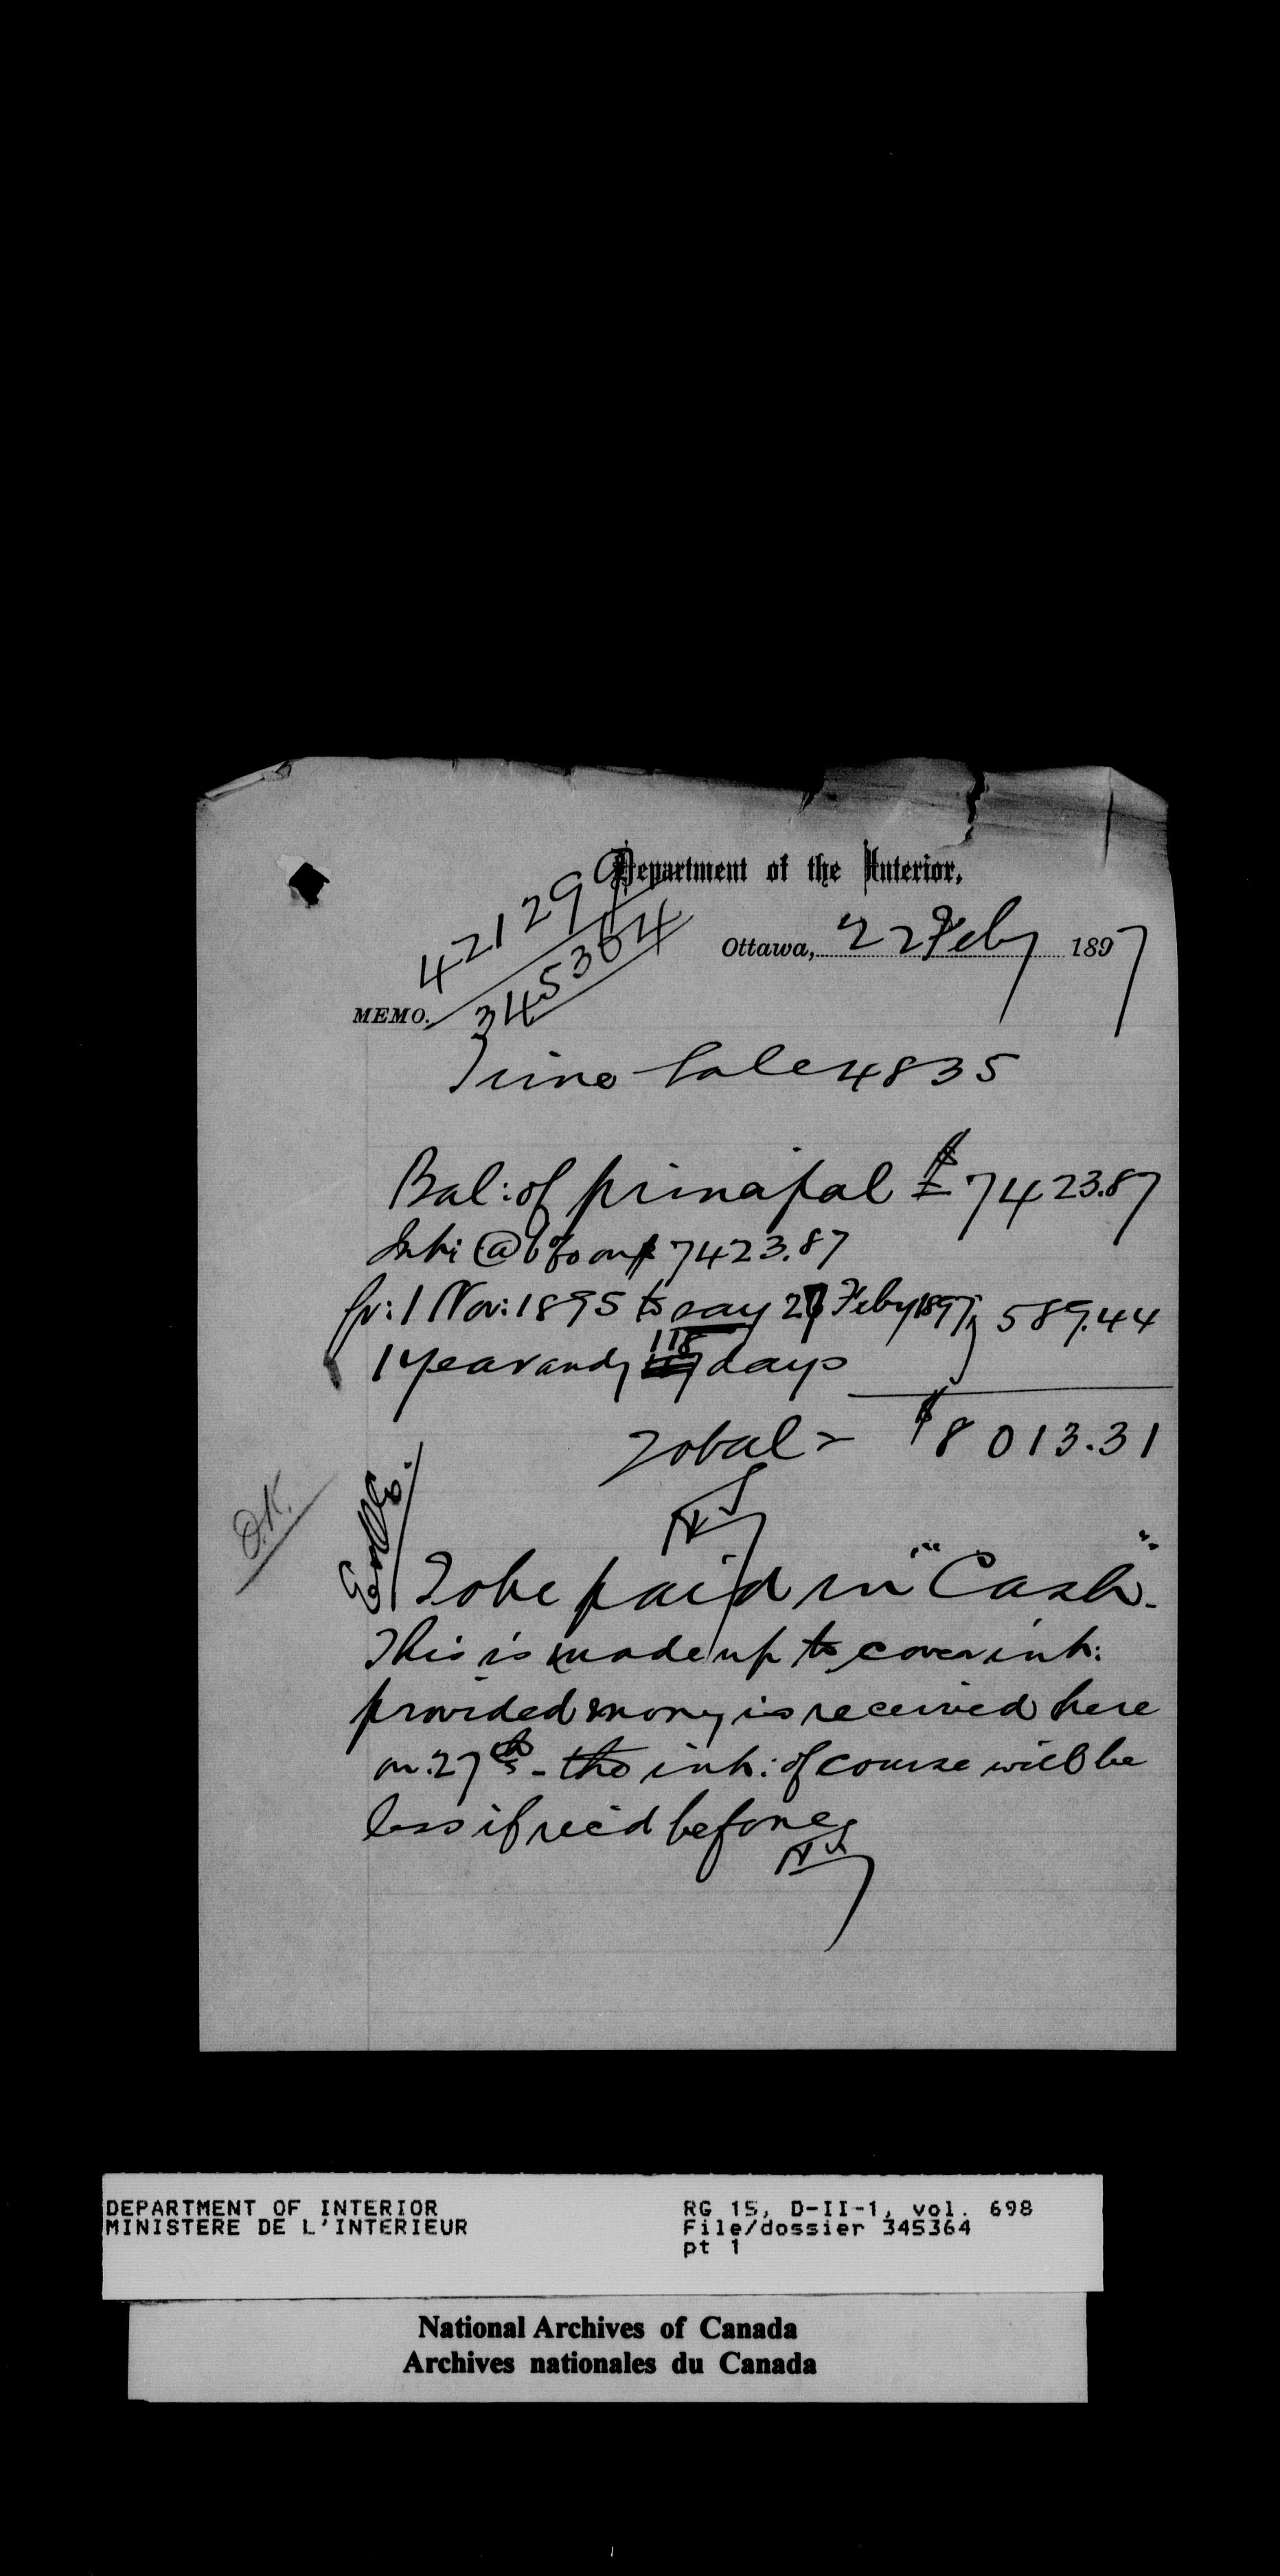 Department of the Interior,
421299
345364
Ottawa, 22 Feby 1897
MEMO.
Time Sale 4835
Bal: of principal = $7423.87
Int: @ 6% on $7423.87
fr: 1 Nov: 1895 to say 27 Feby 1897 } 589.44
1 year and 118 days
Total = $8013.31
O.K.
To be paid in "Cash".
This is made up to cover int:
provided money is received here
on 27th - the int: of course will be
less if rec'd before
DEPARTMENT OF INTERIOR
MINISTERE DE L'INTERIEUR
RG 15, D-II-1, vol. 698
File/dossier 345364
pt 1
National Archives of Canada
Archives nationales du Canada